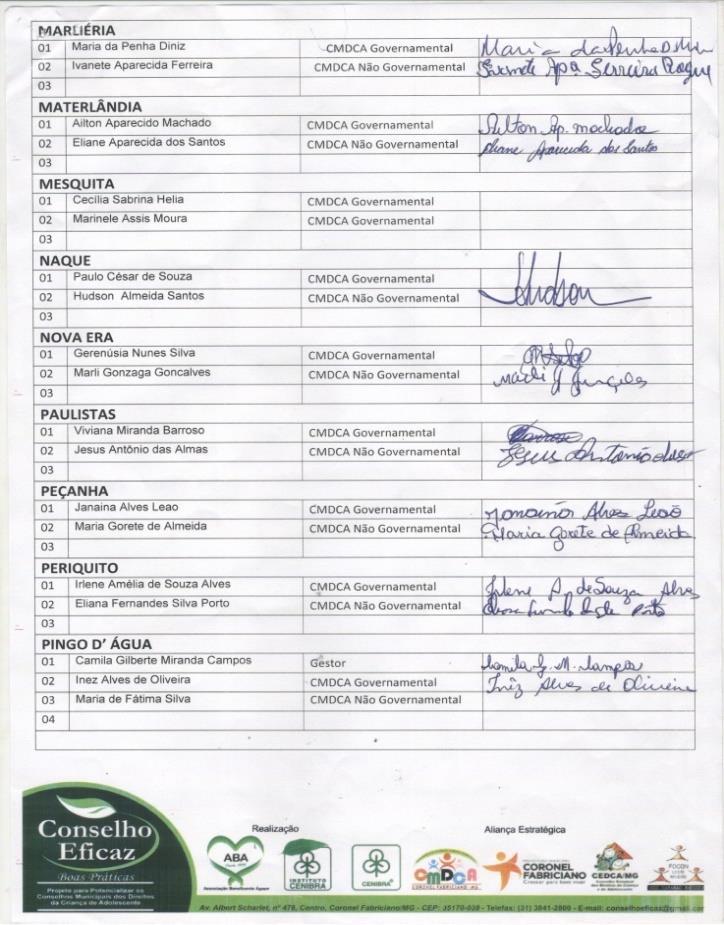 MARLIÉRIA
01 Maria da Penha Diniz CMDCA Governamental Maria da Penha Diniz
02 Ivanete Aparecida Ferreira CMDCA Não Governamental Ivanete Apa Ferreira Roque
03
MATERLÂNDIA
01 Ailton Aparecido Machado CMDCA Governamental Ailton Ap. machado
02 Eliane Aparecida dos Santos CMDCA Não Governamental Eliane Aparecida dos Santos
03
MESQUITA
01 Cecília Sabrina Helia CMDCA Governamental
02 Marinele Assis Moura CMDCA Governamental
03
NAQUE
01 Paulo César de Souza CMDCA Governamental
02 Hudson Almeida Santos CMDCA Não Governamental
03
NOVA ERA
01 Gerenúsia Nunes Silva CMDCA Governamental
02 Marli Gonzaga Goncalves CMDCA Não Governamental Marli G
03
PAULISTAS
01 Viviana Miranda Barroso CMDCA Governamental Barroso
02 Jesus Antônio das Almas CMDCA Não Governamental Jesus Antônio
03
PEÇANHA
01 Janaina Alves Leao CMDCA Governamental Janaina Alves Leão
02 Maria Gorete de Almeida CMDCA Não Governamental Maria Gorete de Almeida
03
PERIQUITO
01 Irlene Amélia de Souza Alves CMDCA Governamental Irlene A. de Souza Alves
02 Eliana Fernandes Silva Porto CMDCA Não Governamental Porto
03
PINGO D' ÁGUA
01 Camila Gilberte Miranda Campos Gestor Camila G. M. Campos
02 Inez Alves de Oliveira CMDCA Governamental Inêz Alves de Oliveira
03 Maria de Fátima Silva CMDCA Não Governamental
04
Conselho
Eficaz
Boas Práticas
Projeto para Potencializar os
Conselhos Municipais dos Direitos
da Criança de Adolescente
Realização
Aliança Estratégica
ABA
Associação Beneficente Ágape
INSTITUTO
CENIBRA
CENIBRA
CMDCA
CORONEL FABRICIANO - MG
CORONEL
FABRICIANO
Crescer para bem viver
CEDCA/MG
Av. Albert Scharlet, n° 478, Centro, Coronel Fabriciano/MG - CEP: 35170-039 - Telefax: (31) 3841-2800 - E-mail: conselhoeficaz@gmail.com